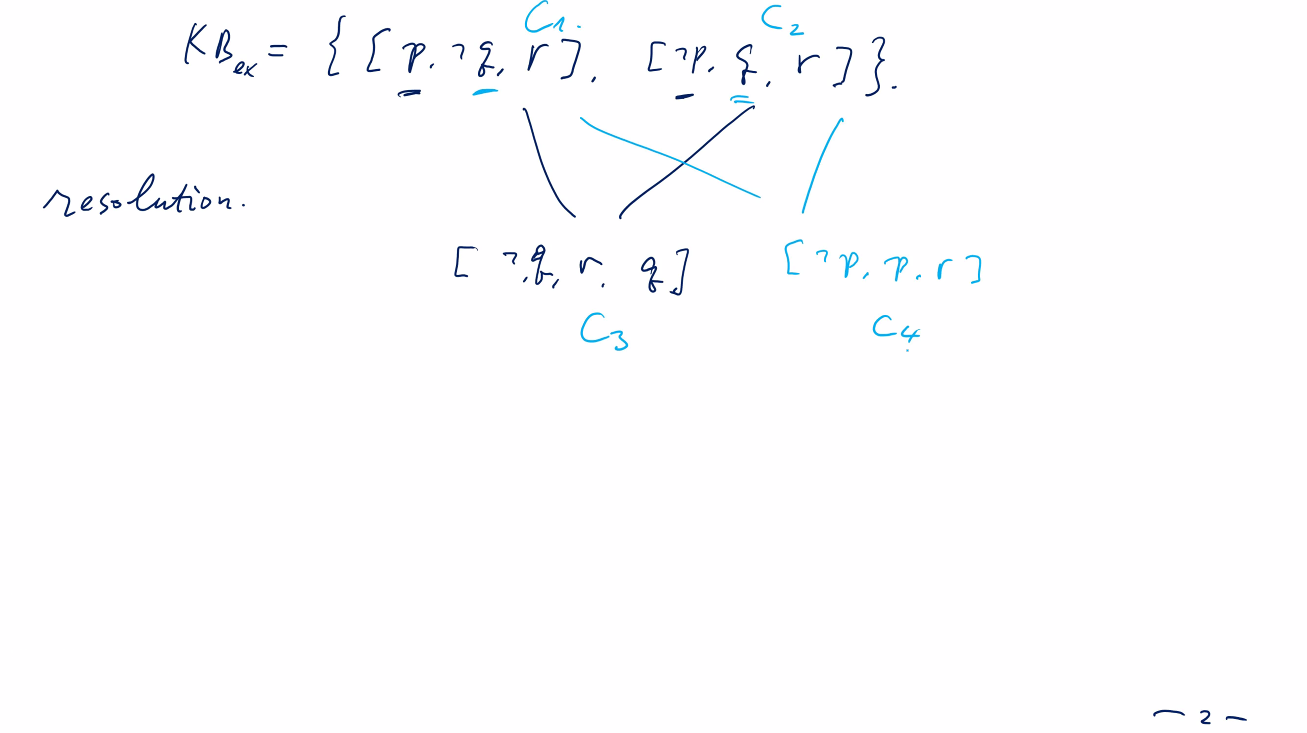 C1.
C2
KBex = { [ p, ¬q, r ], [ ¬p, q, r ] }.
resolution.
[ ¬q, r, q ] [ ¬p, p, r ]
C3 C4
– 2 –